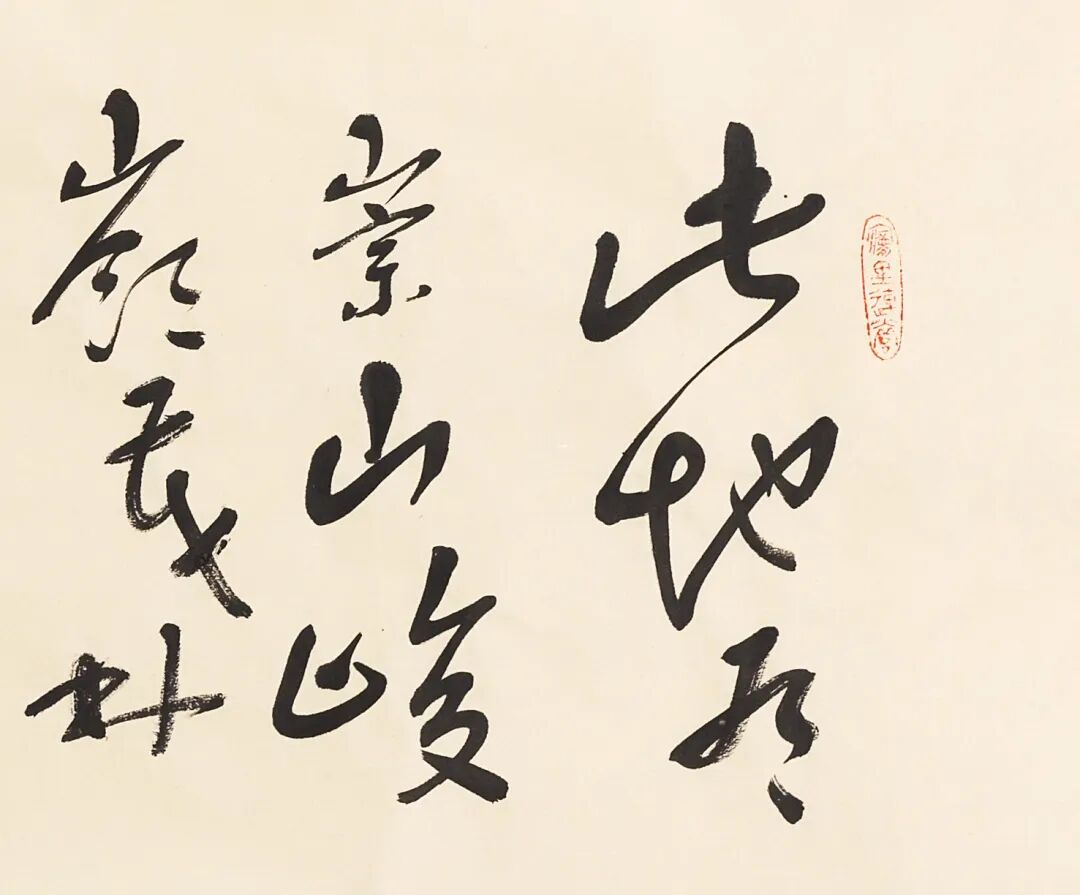 此地有
崇山峻
嶺茂林